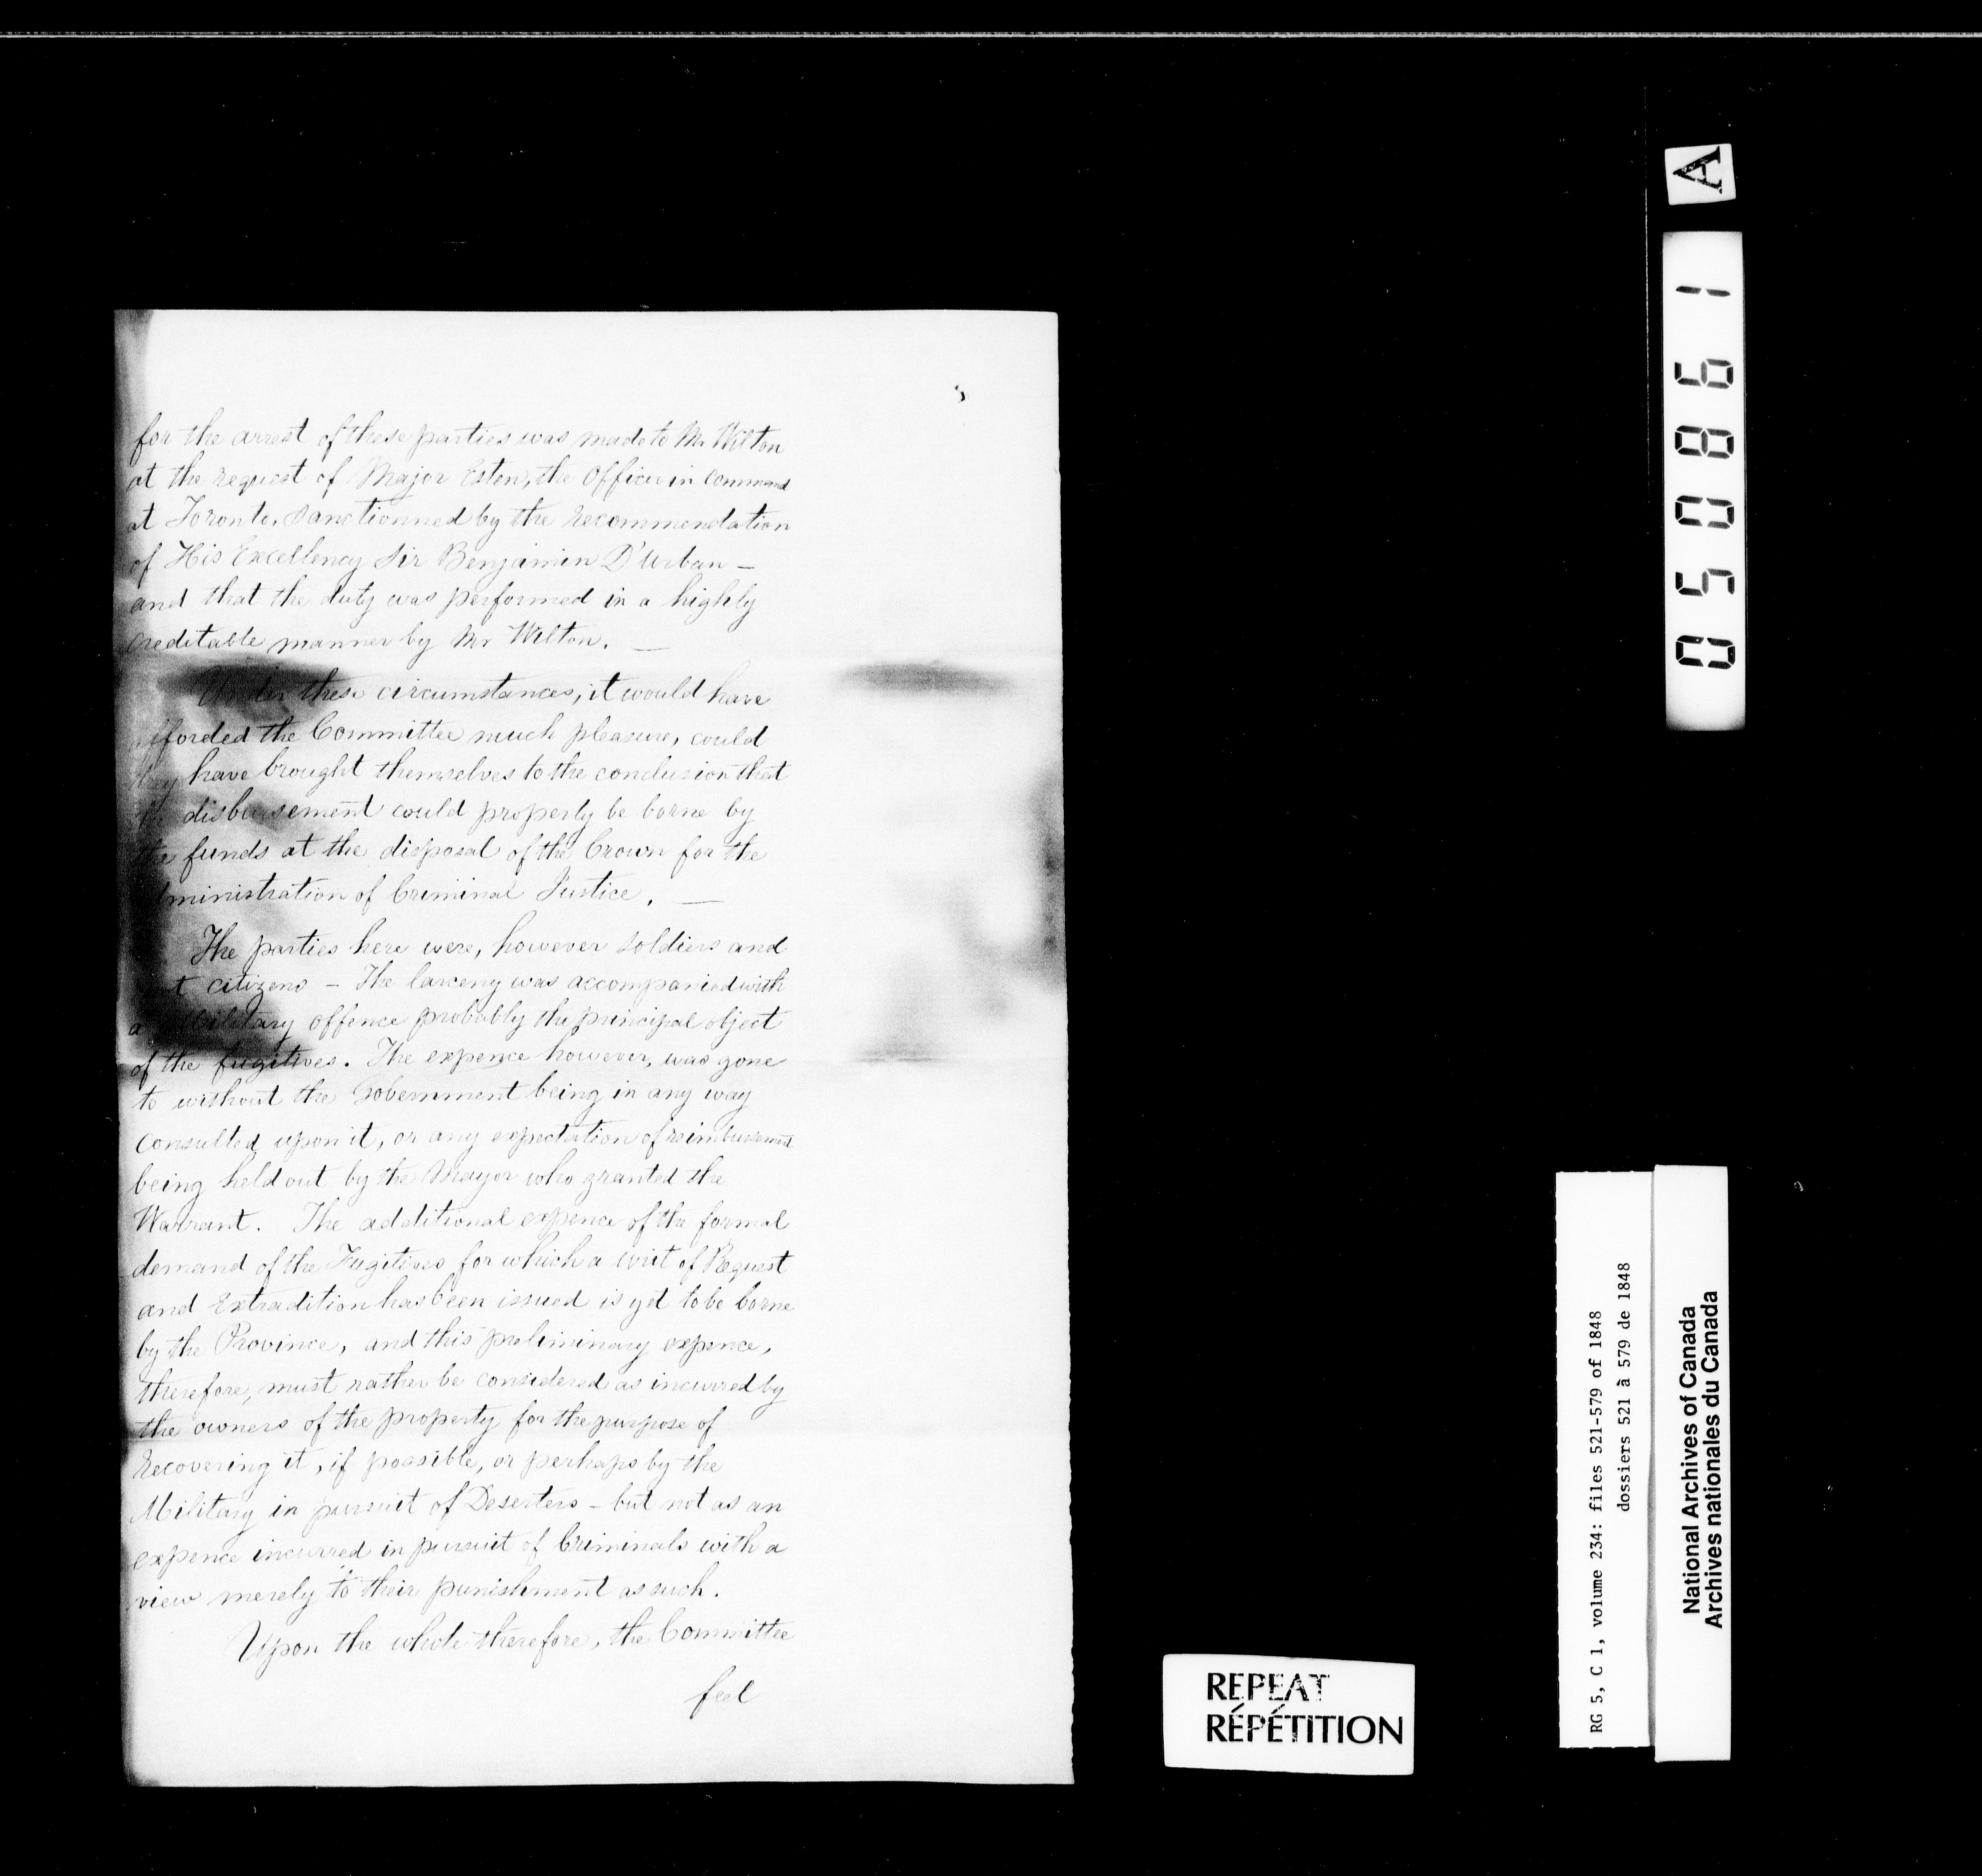 for the arrest of these parties was made to Mr Wilton
at the request of Major Eston, the Officer in Command
at Toronto, Sanctionned by the recommendation
of His Excellency Sir Benjamin D'Urban —
and that the duty was performed in a highly
creditable manner by Mr Wilton. —
Under these circumstances, it would have
afforded the Committee much pleasure, could
they have brought themselves to the conclusion that
the disbursement could properly be borne by
the funds at the disposal of the Crown for the
administration of Criminal Justice. —
The parties here were, however Soldiers and
not citizens – The larceny was accompanied with
a Military offence probably the principal object
of the fugitives. The expence however, was gone
to without the Government being in any way
consulted upon it, or any expectation of reimbursement
being held out by the Mayor who granted the
Warrant. The additional expence of the formal
demand of the Fugitives for which a writ of Request
and Extradition has been issued is yet to be borne
by the Province, and this preliminary expence,
therefore, must rather be considered as incurred by
the owners of the property for the purpose of
Recovering it, if possible, or perhaps by the
Military in pursuit of Deserters – but not as an
expence incurred in pursuit of Criminals with a
view merely to their punishment as such.
Upon the whole therefore, the Committee
feel
REPEAT
RÉPÉTITION
A
050861
RG 5, C 1, volume 234: files 521-579 of 1848
dossiers 521 à 579 de 1848
National Archives of Canada
Archives nationales du Canada